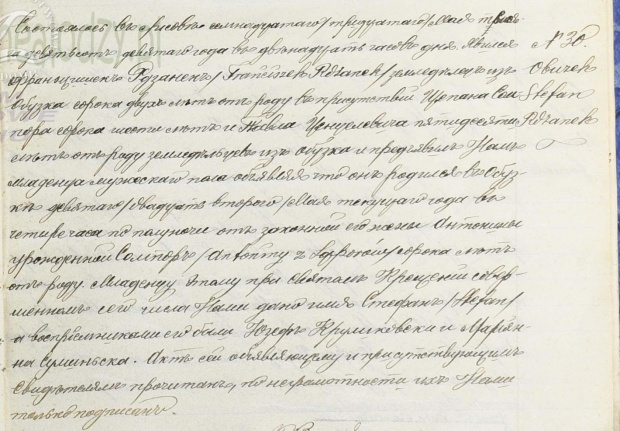 Состоялось въ Брисковъ семнадцатаго /тридцатаго/ Мая тысяча
девятьсотъ девятаго года въ двѣнадцать часовъ дня. Явился
Францишекъ Рдзанекъ /Franciszek Rdzanek/ земледѣлецъ изъ
сорока двухъ лѣтъ отъ роду въ присутствіи Щепана
сорока шести лѣтъ и пятидесяти
лѣтъ отъ роду земледѣльцевъ изъ и предъявилъ Намъ
младенца мужескаго пола объявляя что онъ родился въ
девятаго /двадцать второго/ Мая текущаго года въ
четыре часа по полуночи отъ законной его жены Антонины
урожденной /Antoniny z сорока лѣтъ
отъ роду. Младенцу этому при Святомъ Крещеніи совер-
шенномъ сего числа Нами дано имя Стефанъ /Stefan/
а воспріемниками его были Юзефъ Круликовски и Маріян-
на Суминьска. Актъ сей объявляющему и присутствующимъ
свидѣтелямъ прочитанъ, по неграмотности ихъ Нами
только подписанъ.
№ 30.
Stefan
Rdzanek